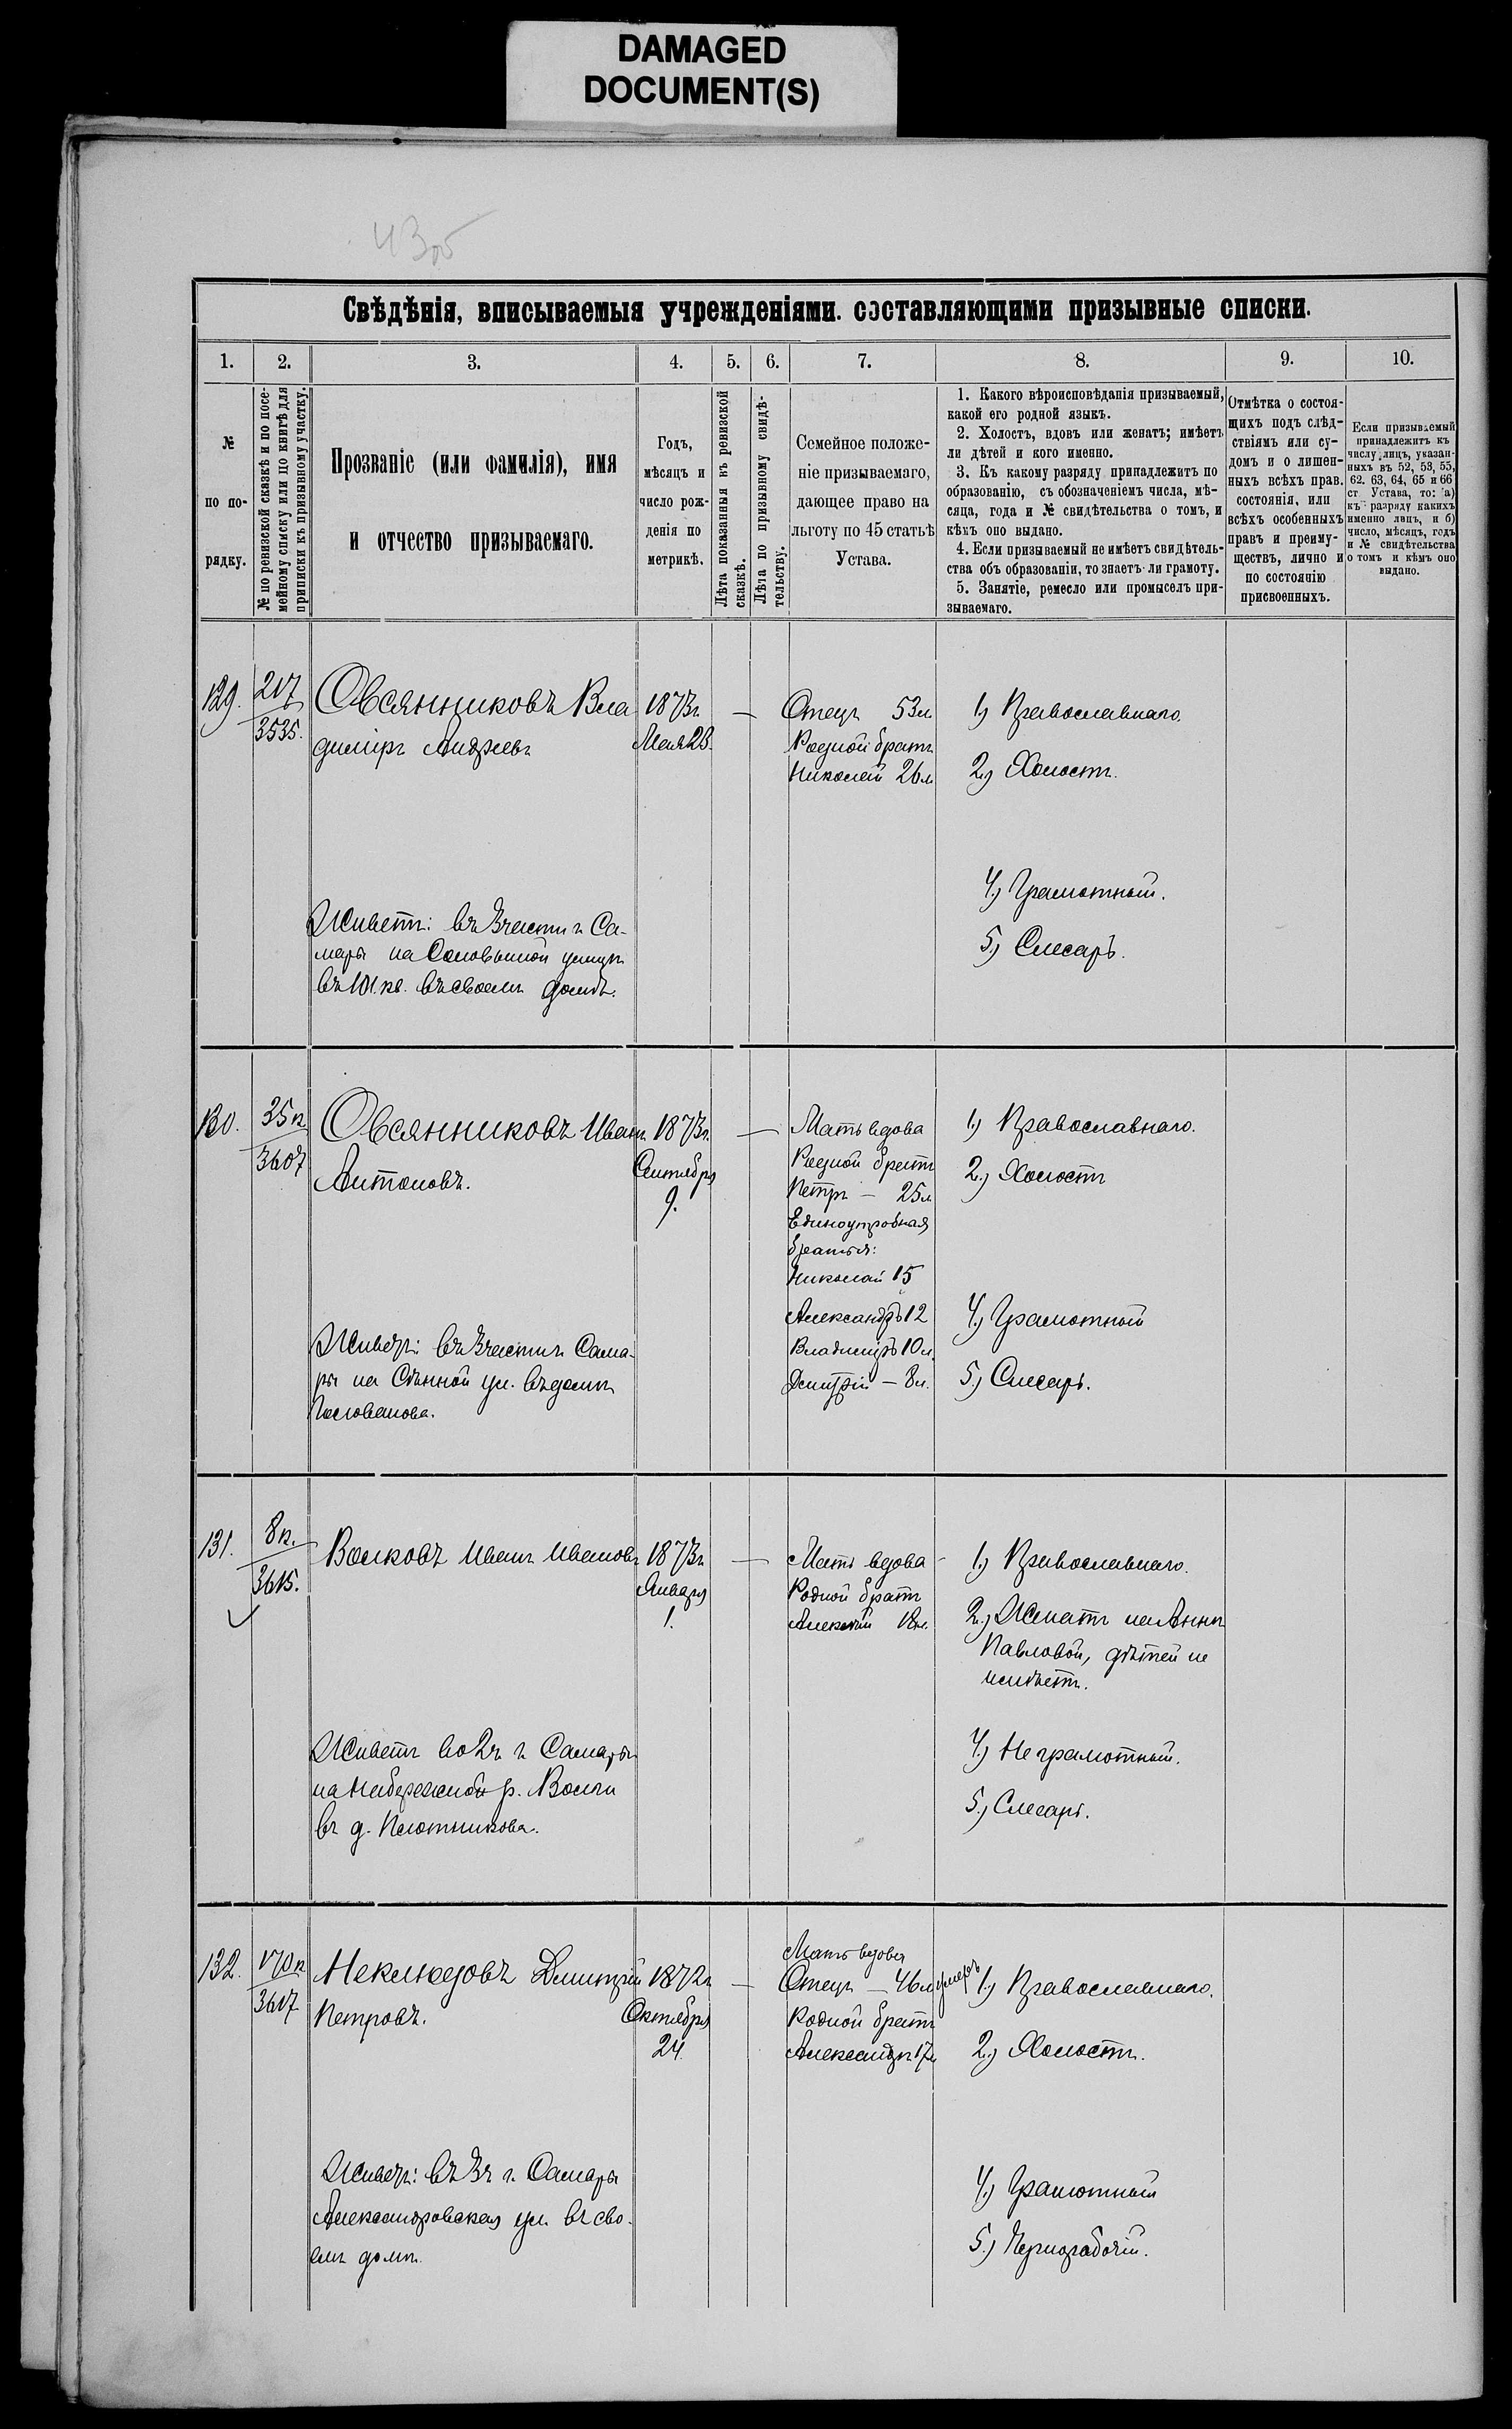 DAMAGED
DOCUMENT(S)
43об
Свѣдѣнія, вписываемыя учрежденіями. составляющими призывные списки.
1.
2.
3.
4.
5.
6.
7.
8.
9.
10.
№
по по-
рядку.
№ по ревизской сказкѣ и по посе-
мейному списку или по книгѣ для
приписки къ призывному участку.
Прозваніе (или фамилія), имя
и отчество призываемаго.
Годъ,
мѣсяцъ и
число рож-
денія по
метрикѣ.
Лѣта показанныя къ ревизской
сказкѣ.
Лѣта по призывному свидѣ-
тельству.
Семейное положе-
ніе призываемаго,
дающее право на
льготу по 45 статьѣ
Устава.
1. Какого вѣроисповѣданія призываемый,
какой его родной языкъ.
2. Холостъ, вдовъ или женатъ; имѣетъ
ли дѣтей и кого именно.
3. Къ какому разряду принадлежитъ по
образованію, съ обозначеніемъ числа, мѣ-
сяца, года и № свидѣтельства о томъ, и
кѣмъ оно выдано.
4. Если призываемый не имѣетъ свидѣтель-
ства объ образованіи, то знаетъ-ли грамоту.
5. Занятіе, ремесло или промыселъ при-
зываемаго.
Отмѣтка о состоя-
щихъ подъ слѣд-
ствіямъ или су-
домъ и о лишен-
ныхъ всѣхъ прав.
состоянія, или
всѣхъ особенныхъ
правъ и преиму-
ществъ, лично и
по состоянію
присвоенныхъ.
Если призываемый
принадлежитъ къ
числу лицъ, указан-
ныхъ въ 52, 53, 55,
62. 63, 64, 65 и 66
ст Устава, то: а)
къ разряду какихъ
именно лицъ, и б)
число, мѣсяцъ, годъ
и № свидѣтельства
о томъ и кѣмъ оно
выдано.
129.
217
3535.
Овсянниковъ Вла
диміръ Андреевъ
Живетъ: въ 3 части г. Са-
мары на Соловьиной улицѣ
въ 101 кв. въ своемъ домѣ.
1873г.
Мая 23.
—
Отецъ 53л.
Родной братъ
Николай 26л.
1.) Православнаго.
2.) Холостъ.
4.) Грамотный.
5.) Слесарь.
130.
35к
3607
Овсянниковъ Иванъ
Антоновъ.
Живетъ: въ 3 части г. Сама-
ры на Сѣнной ул. въ домѣ
1873г.
Сентября
9.
—
Мать вдова
Родной братъ
Петръ — 25л.
Единоутробная
братья:
Николай 15
Александръ 12
Владиміръ 10л.
Дмитрій — 8л.
1.) Православнаго.
2.) Холостъ
4.) Грамотный
5.) Слесарь.
131.
8к.
3615.
Волковъ Иванъ Ивановъ
Живетъ во 2ч. г. Самары
на Набережной р. Волги
въ д. Плотникова.
1873г.
Января
1.
—
Мать вдова
Родной братъ
Алексѣй 18л.
1.) Православнаго.
2.) Женатъ на Аннѣ
Павловой, дѣтей не
имѣетъ.
4.) Неграмотный.
5.) Слесарь.
132.
170к
3617
Неклюдовъ Дмитрій
Петровъ.
Живетъ: въ 3ч. г. Самары
Александровская ул. въ сво-
емъ домѣ.
1872г.
Октября
24.
—
Мать вдова
Отецъ — 46л. умеръ
Родной братъ
Александръ 17л.
1.) Православнаго.
2.) Холостъ.
4.) Грамотный
5.) Чернорабочій.